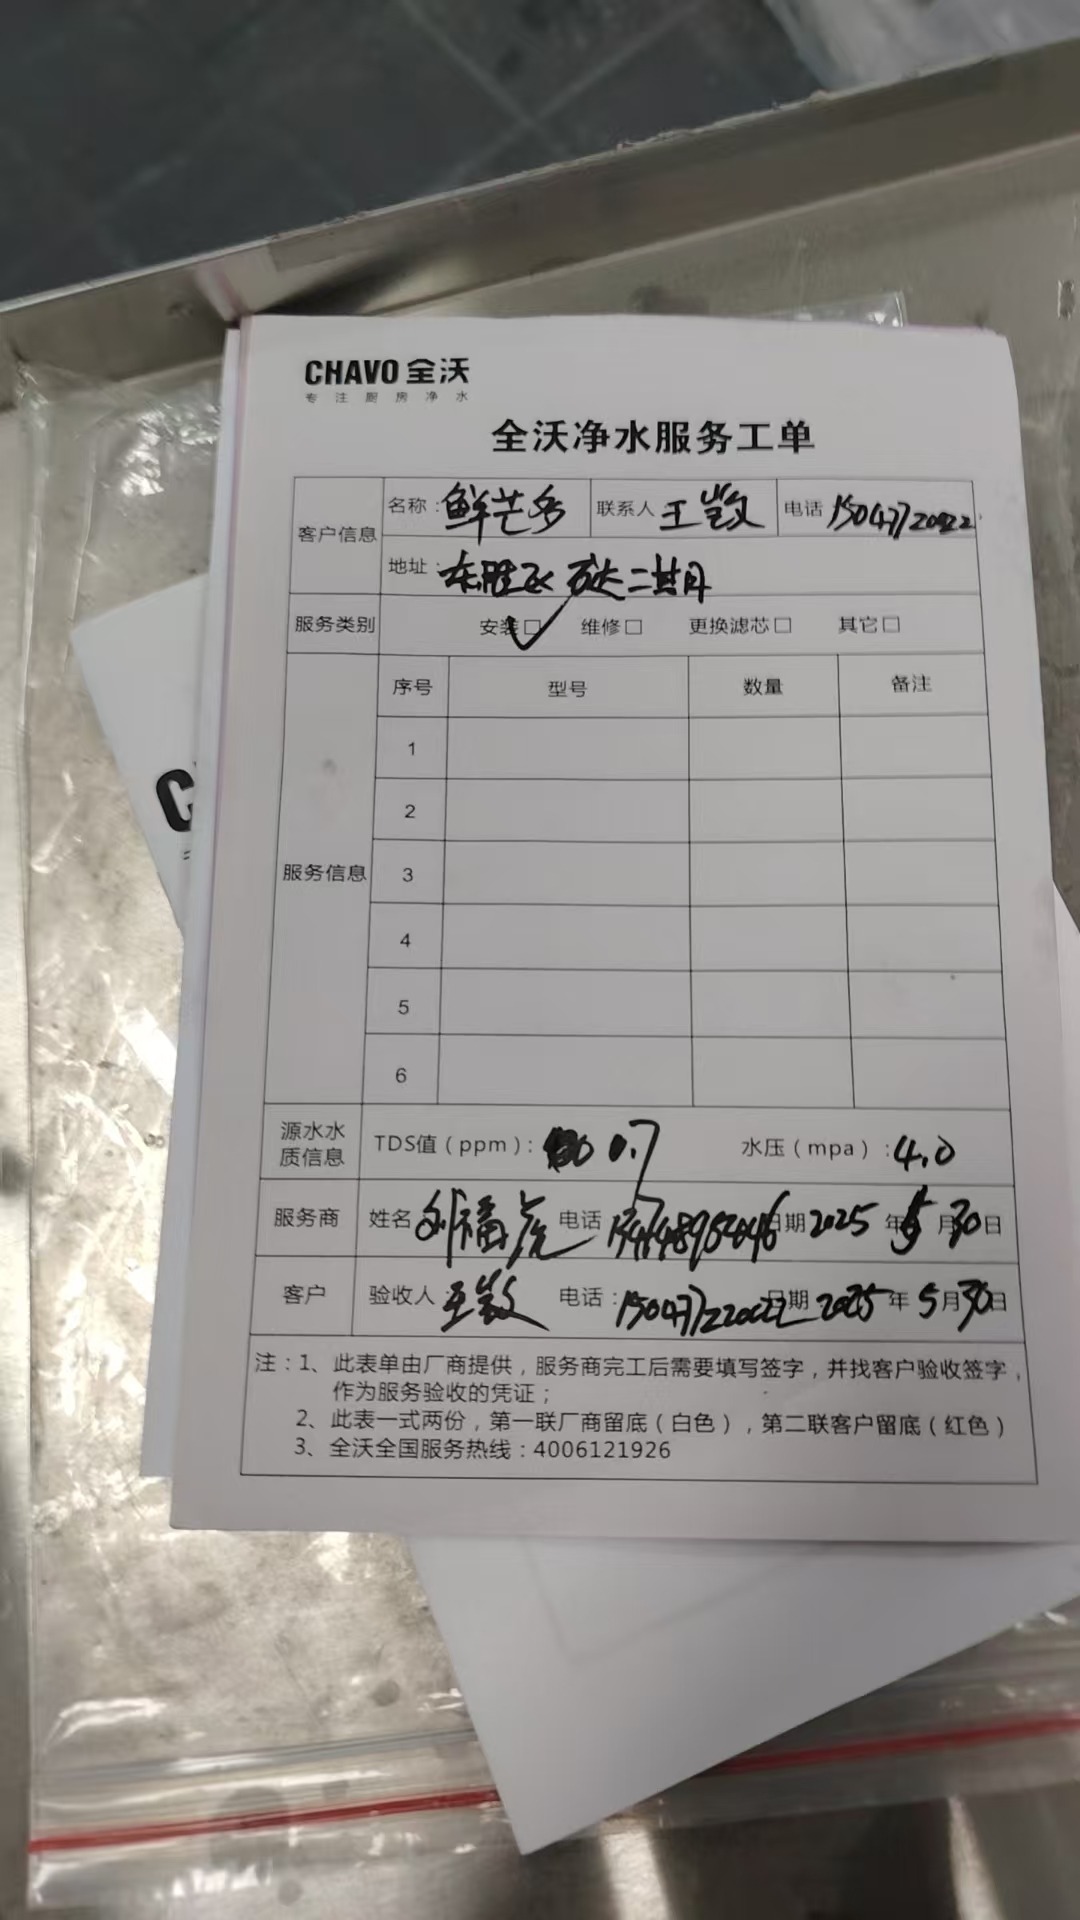 CHAVO 全沃
专注厨房净水
全沃净水服务工单
客户信息 名称：鲜芒多 联系人 王 电话
地址：东胜 万达二楼
服务类别 安装□ 维修□ 更换滤芯□ 其它□
服务信息 序号 型号 数量 备注
1
2
3
4
5
6
源水水质信息 TDS值（ppm）： 0.7 水压（mpa）：4.0
服务商 姓名 刘福虎 电话 日期 2025 年 5 月 30 日
客户 验收人：王 电话： 日期：2025 年 5 月 30 日
注：1、此表单由厂商提供，服务商完工后需要填写签字，并找客户验收签字，
作为服务验收的凭证；
2、此表一式两份，第一联厂商留底（白色），第二联客户留底（红色）
3、全沃全国服务热线：4006121926
C